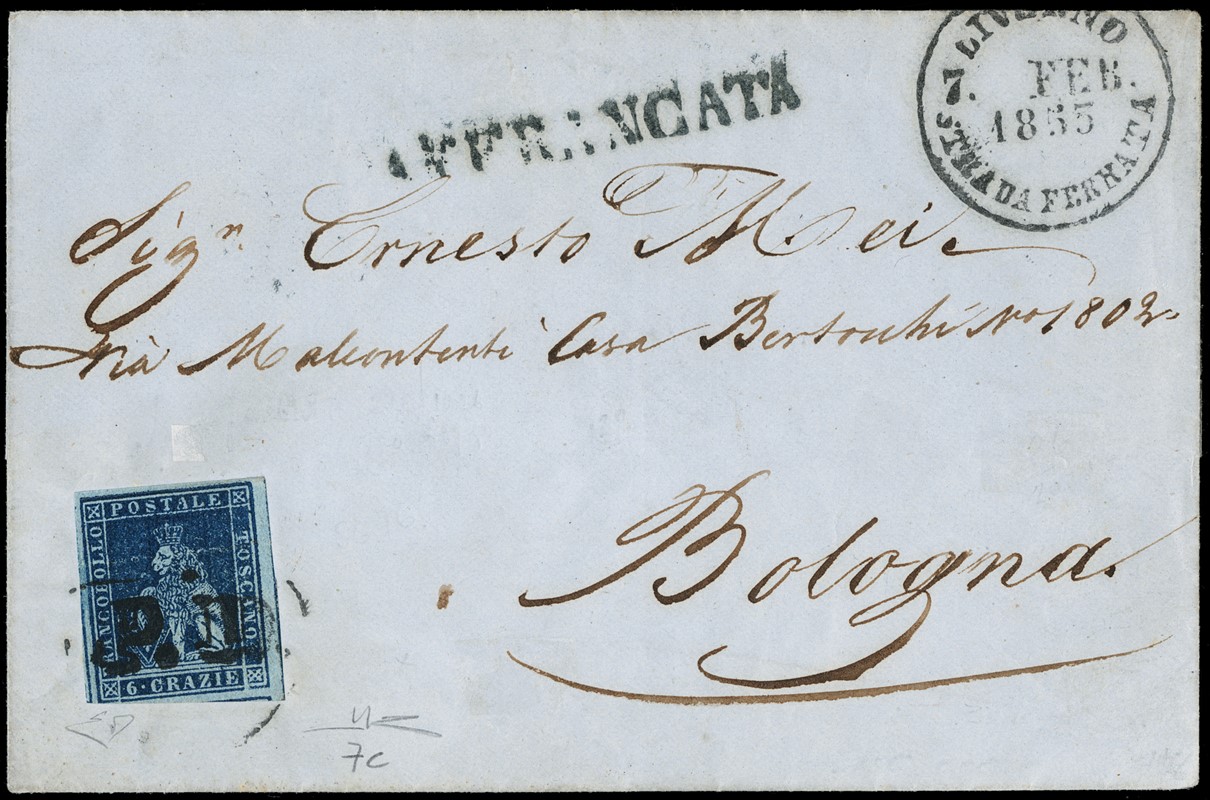 LIVORNO
7. FEB.
1855
STRADA FERRATA
AFFRANCATA
Sigr. Ernesto Mei.
Via Malcontenti Casa Bertocchi No 1802.
Bologna.
FRANCOBOLLO POSTALE TOSCANO
P.D
6·GRAZIE
7c